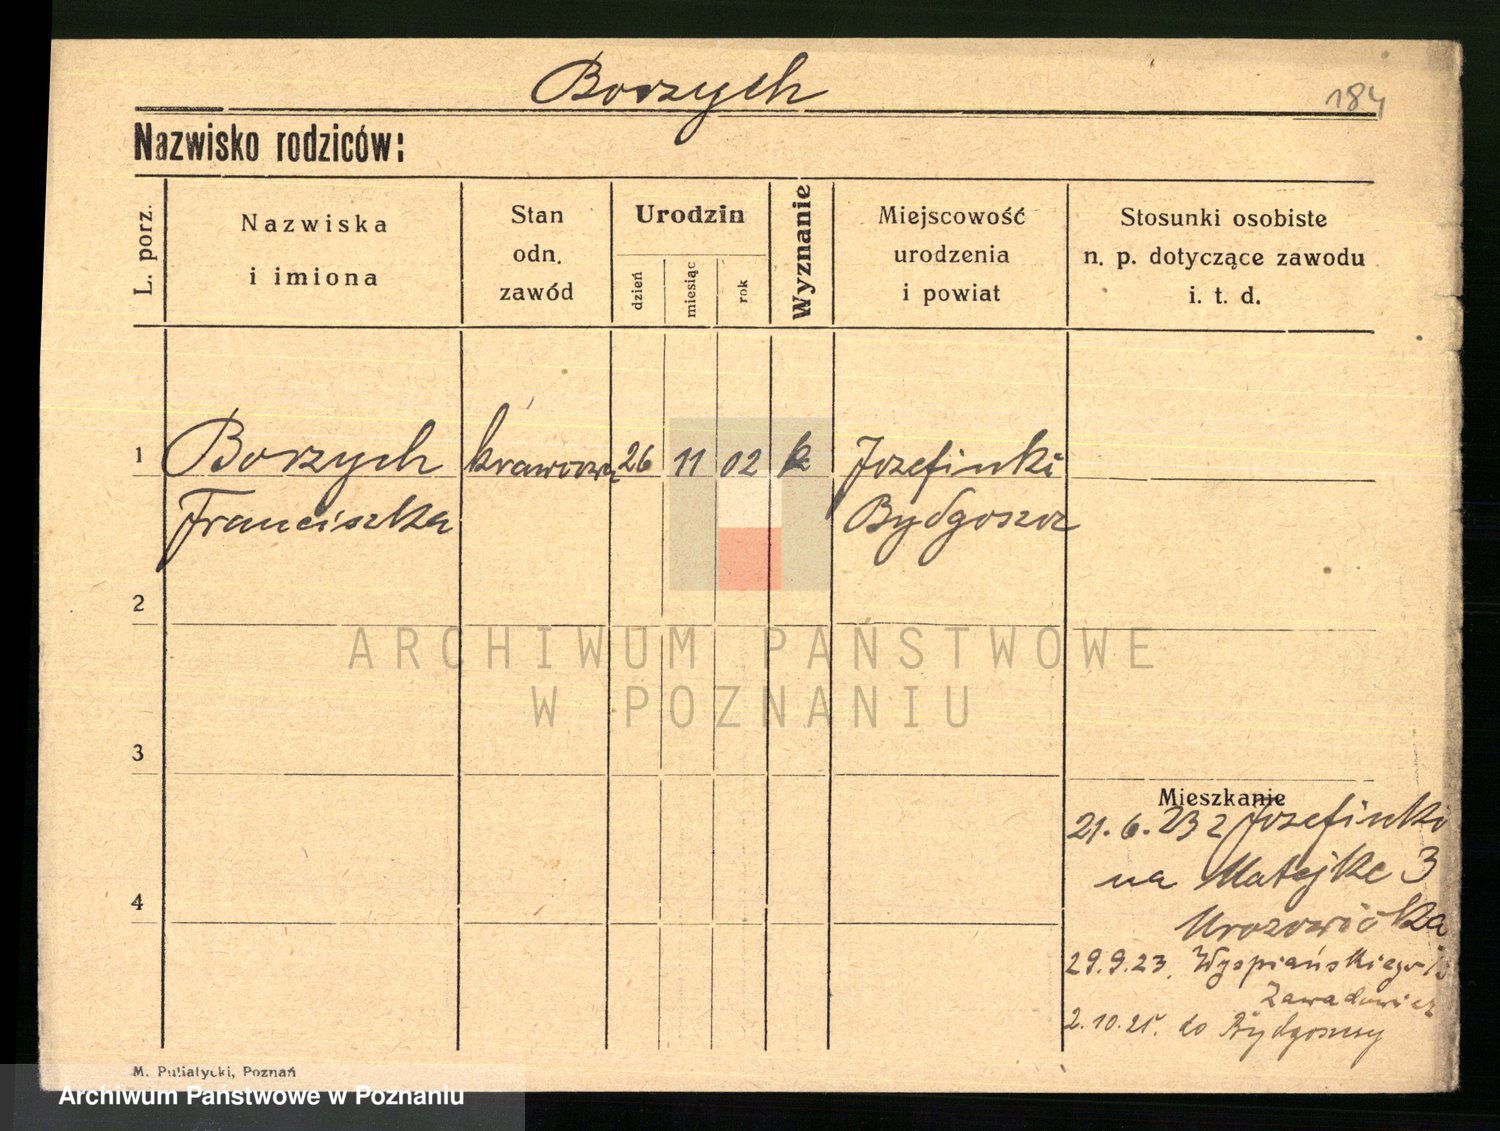 Borzych
184
Nazwisko rodziców:
L. porz.
Nazwiska
i imiona
Stan
odn.
zawód
Urodzin
dzień
miesiąc
rok
Wyznanie
Miejscowość
urodzenia
i powiat
Stosunki osobiste
n. p. dotyczące zawodu
i. t. d.
1 Borzych krawcowa 26 11 02 k Jozefinki
Franciszka Bydgoszcz
2
ARCHIWUM PAŃSTWOWE
W POZNANIU
3
Mieszkanie
21. 6. 23 z Jozefinki
na Matejke 3
4
29.9.23. Wyspiańskiego
2.10.25. do Bydgoszczy
M. Putiatycki, Poznań
Archiwum Państwowe w Poznaniu